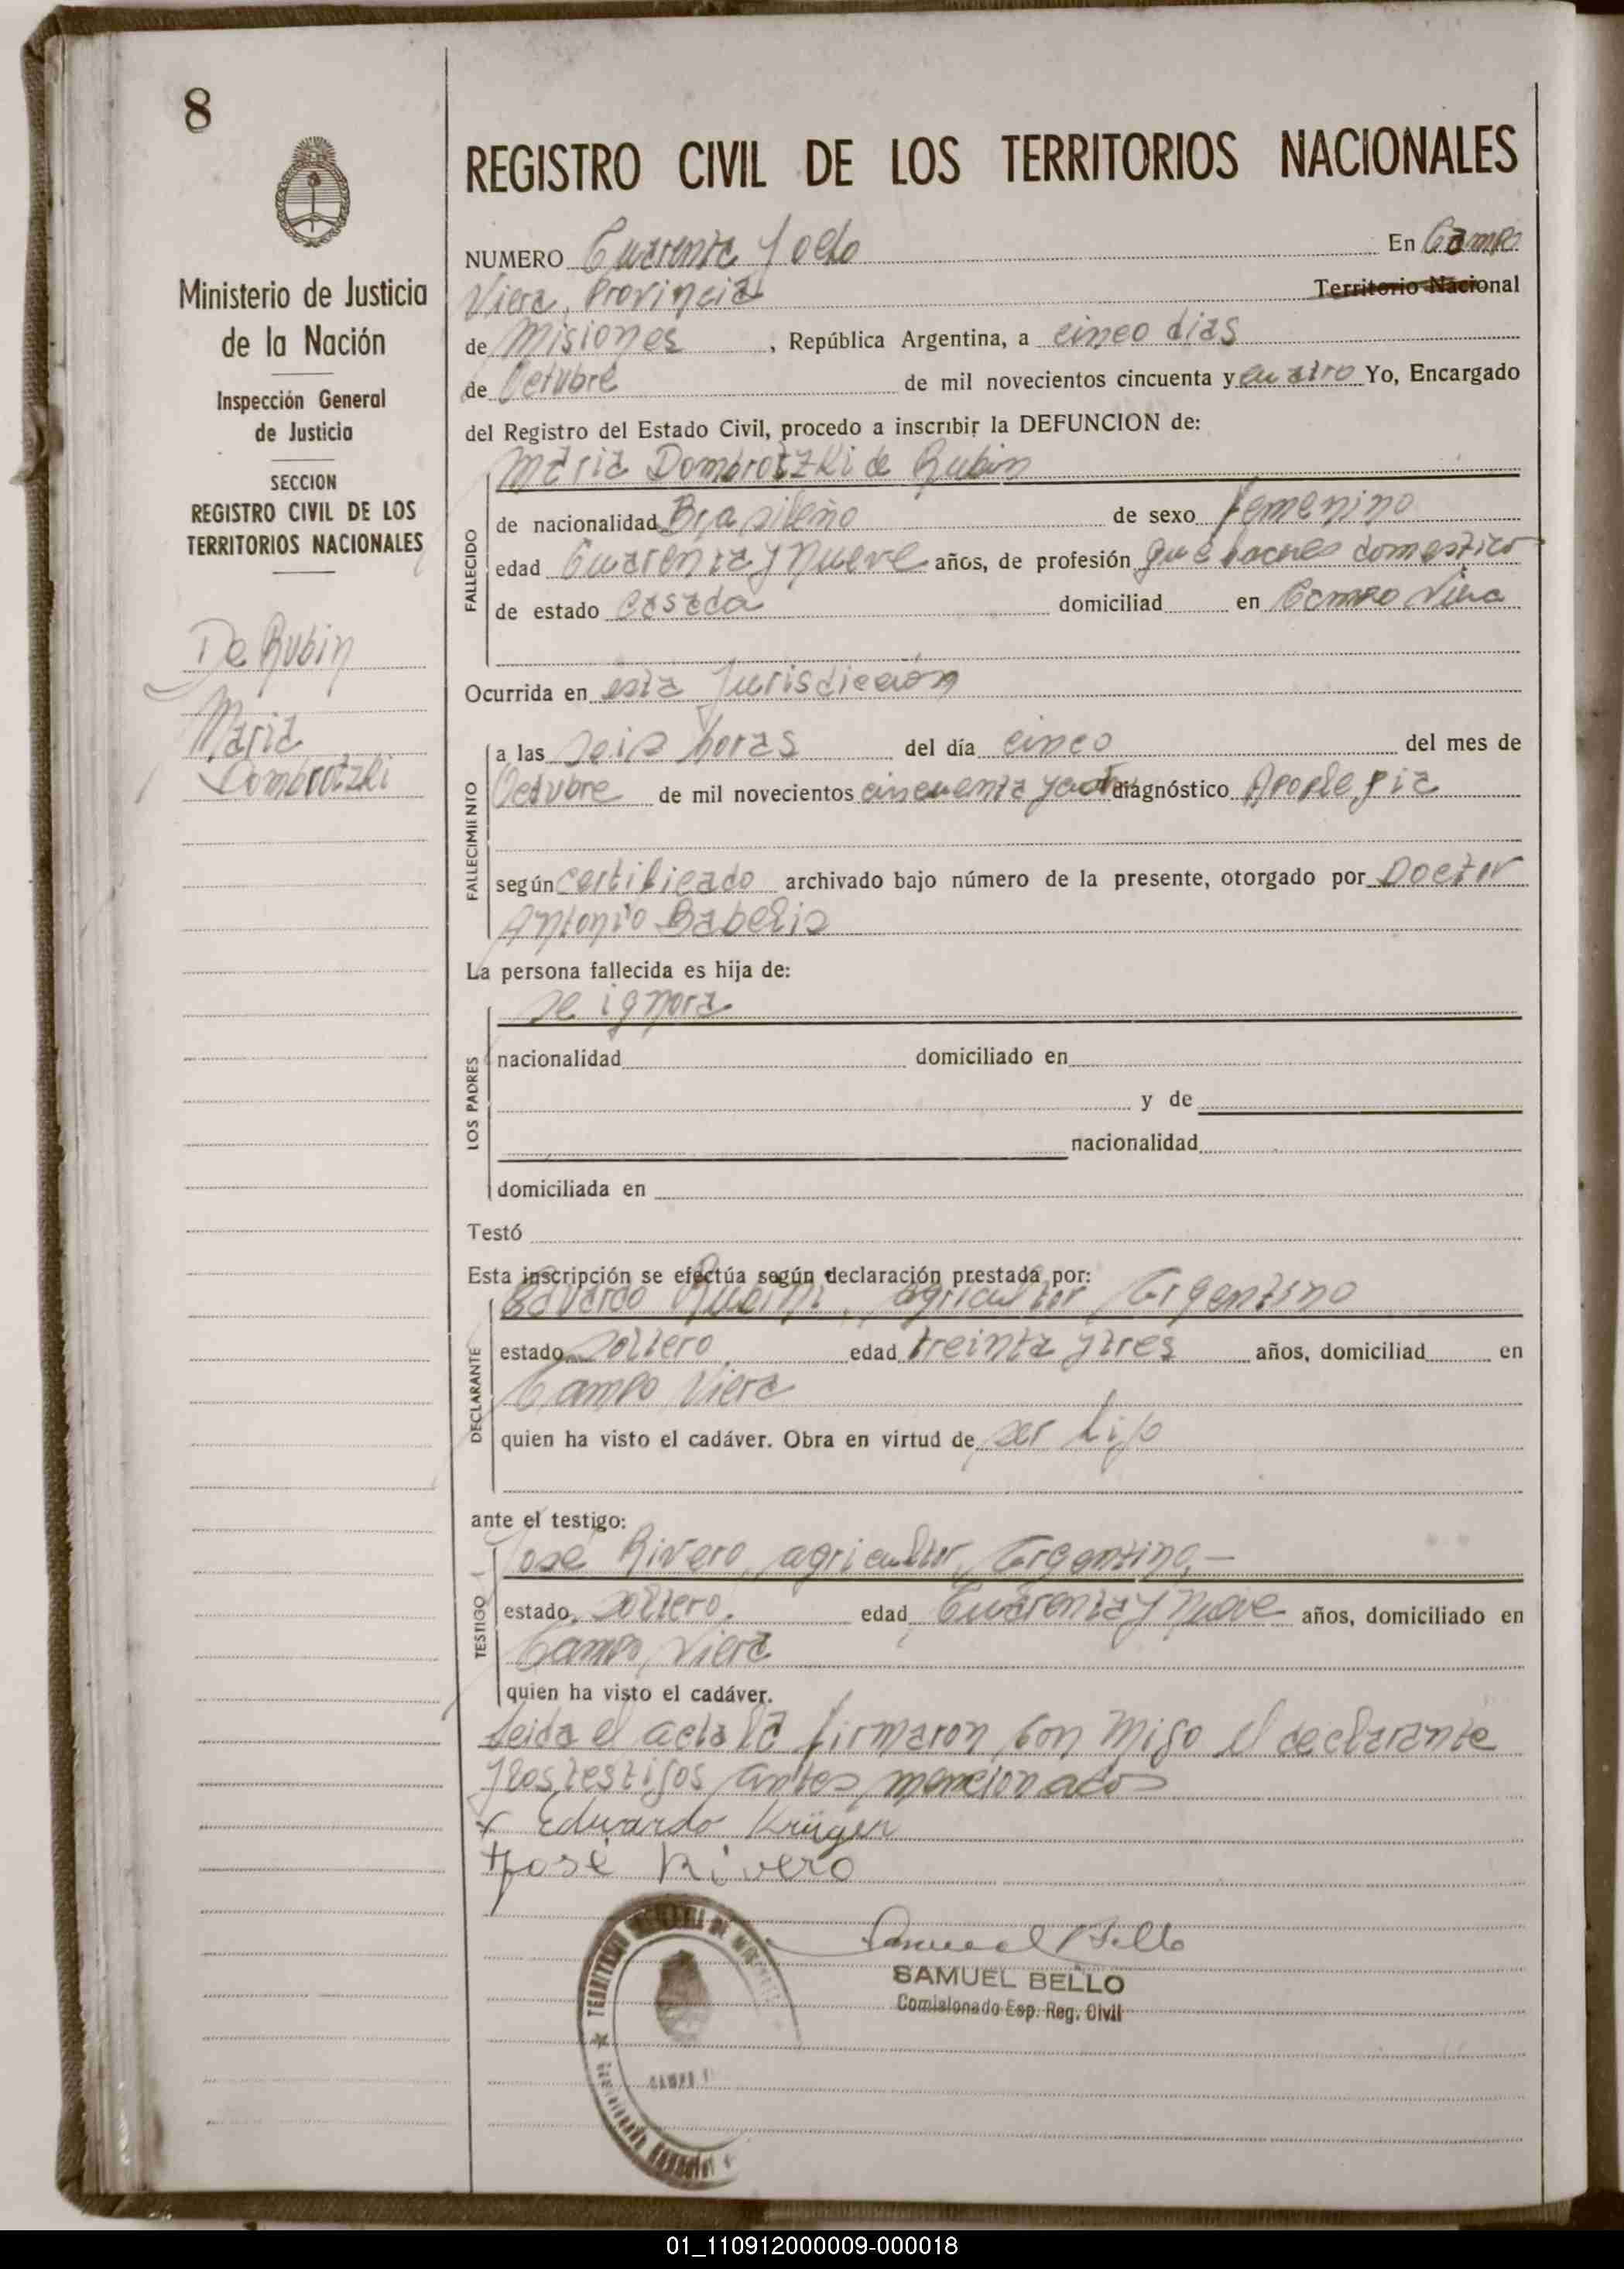 8
Ministerio de Justicia
de la Nación
Inspección General
de Justicia
SECCION
REGISTRO CIVIL DE LOS
TERRITORIOS NACIONALES
De Rubin
Maria
Dombrotzki
REGISTRO CIVIL DE LOS TERRITORIOS NACIONALES
NUMERO Cuarenta y ocho En Campo
Viera, Provincia Territorio Nacional
de Misiones, República Argentina, a cinco dias
de Octubre de mil novecientos cincuenta y cuatro Yo, Encargado
del Registro del Estado Civil, procedo a inscribir la DEFUNCION de:
Maria Dombrotzki de Rubin
FALLECIDO
de nacionalidad Brasileño de sexo femenino
edad Cuarenta y nueve años, de profesión que haceres domestico
de estado Casada domiciliad en Campo Viera
Ocurrida en esta Jurisdicción
FALLECIMIENTO
a las seis horas del día cinco del mes de
Octubre de mil novecientos cincuenta y diagnóstico Apoplegia
según certificado archivado bajo número de la presente, otorgado por Doctor
Antonio Babelis
La persona fallecida es hija de:
se ignora
LOS PADRES
nacionalidad domiciliado en
y de
nacionalidad
domiciliada en
Testó
Esta inscripción se efectúa según declaración prestada por:
Eduardo agricultor, Argentino
DECLARANTE
estado soltero edad treinta y tres años, domiciliad en
Campo Viera
quien ha visto el cadáver. Obra en virtud de ser hijo
ante el testigo:
José Rivero, agricultor, Argentino, —
TESTIGO
estado, soltero. edad Cuarenta y nueve años, domiciliado en
Campo Viera
quien ha visto el cadáver.
Leida el acta la firmaron con migo el declarante
y los testigos antes mencionados
Eduardo Krügen
José Rivero
Samuel Bello
SAMUEL BELLO
Comisionado Esp. Reg. Civil
01_110912000009-000018